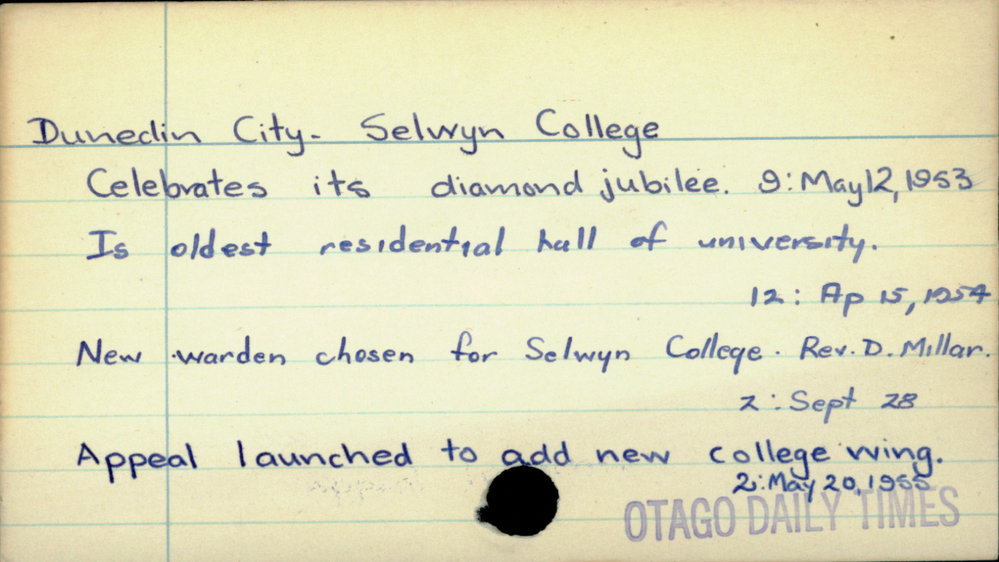 Dunedin City- Selwyn College
Celebrates its diamond jubilee. 9: May 12, 1953
Is oldest residential hall of university.
12: Ap 15, 1954
New warden chosen for Selwyn College. Rev. D. Millar.
2: Sept 28
Appeal launched to add new college wing.
2: May 20, 1955
OTAGO DAILY TIMES